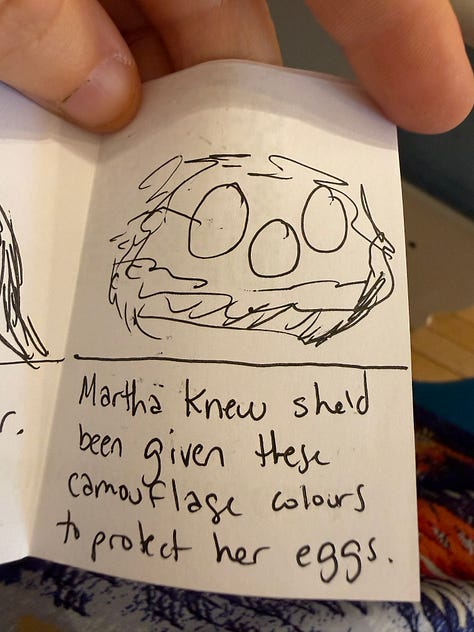 r.
Martha knew she'd
been given these
camouflage colours
to protect her eggs.